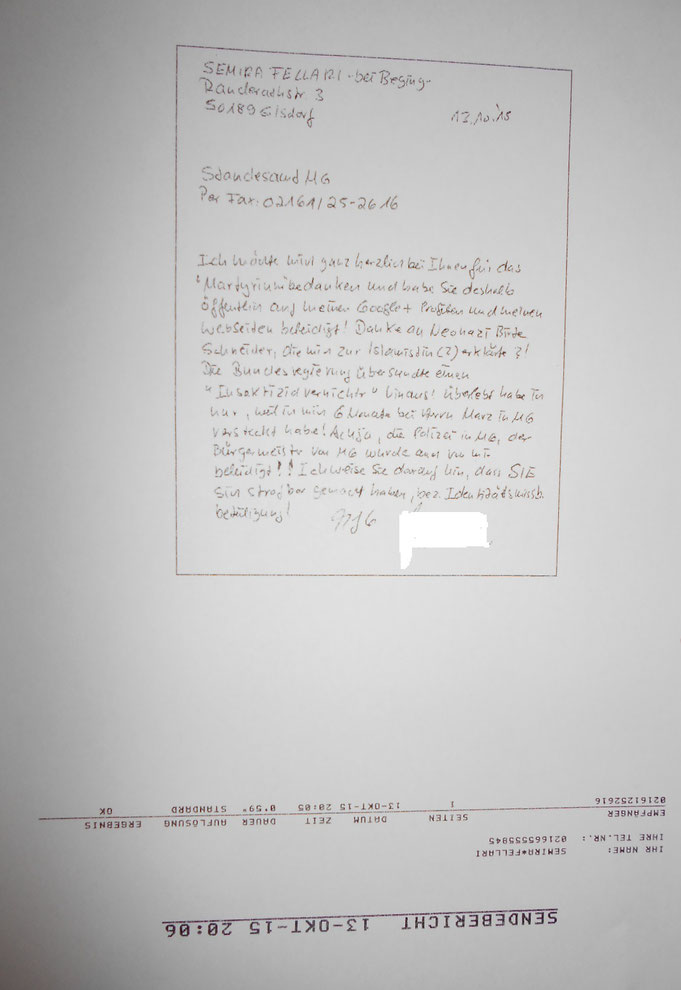 SEMIRA FELLARI - bei Beging -
Randerathstr. 3
50189 Elsdorf
13.10.'15
Standesamt MG
Per Fax: 02161/25-2616
Ich möchte mich ganz herzlich bei Ihnen für das
Martyrium bedanken und habe Sie deshalb
öffentlich auf meinen Google+ Profilen und meinen
Webseiten beleidigt! Danke an Neonazi
Schneider, die mich zur Islamistin (?) erklärte ?!
Die Bundesregierung übersandte einen
" hinaus! Überlebt habe ich
nur, weil ich mich 6 Monate bei Herrn Marz in MG
versteckt habe! Achja, die Polizei in MG, der
Bürgermeister von MG wurde auch von mir
beleidigt!! Ich weise Sie darauf hin, dass SIE
sich strafbar gemacht haben, bez. Identitätsmissb.
beteiligung!
SENDEBERICHT 13-OKT-15 20:06
IHR NAME: SEMIRA*FELLARI
IHRE TEL.NR.: 02166555845
EMPFÄNGER SEITEN DATUM ZEIT DAUER AUFLÖSUNG ERGEBNIS
02161252616 1 13-OKT-15 20:05 0'59" STANDARD OK